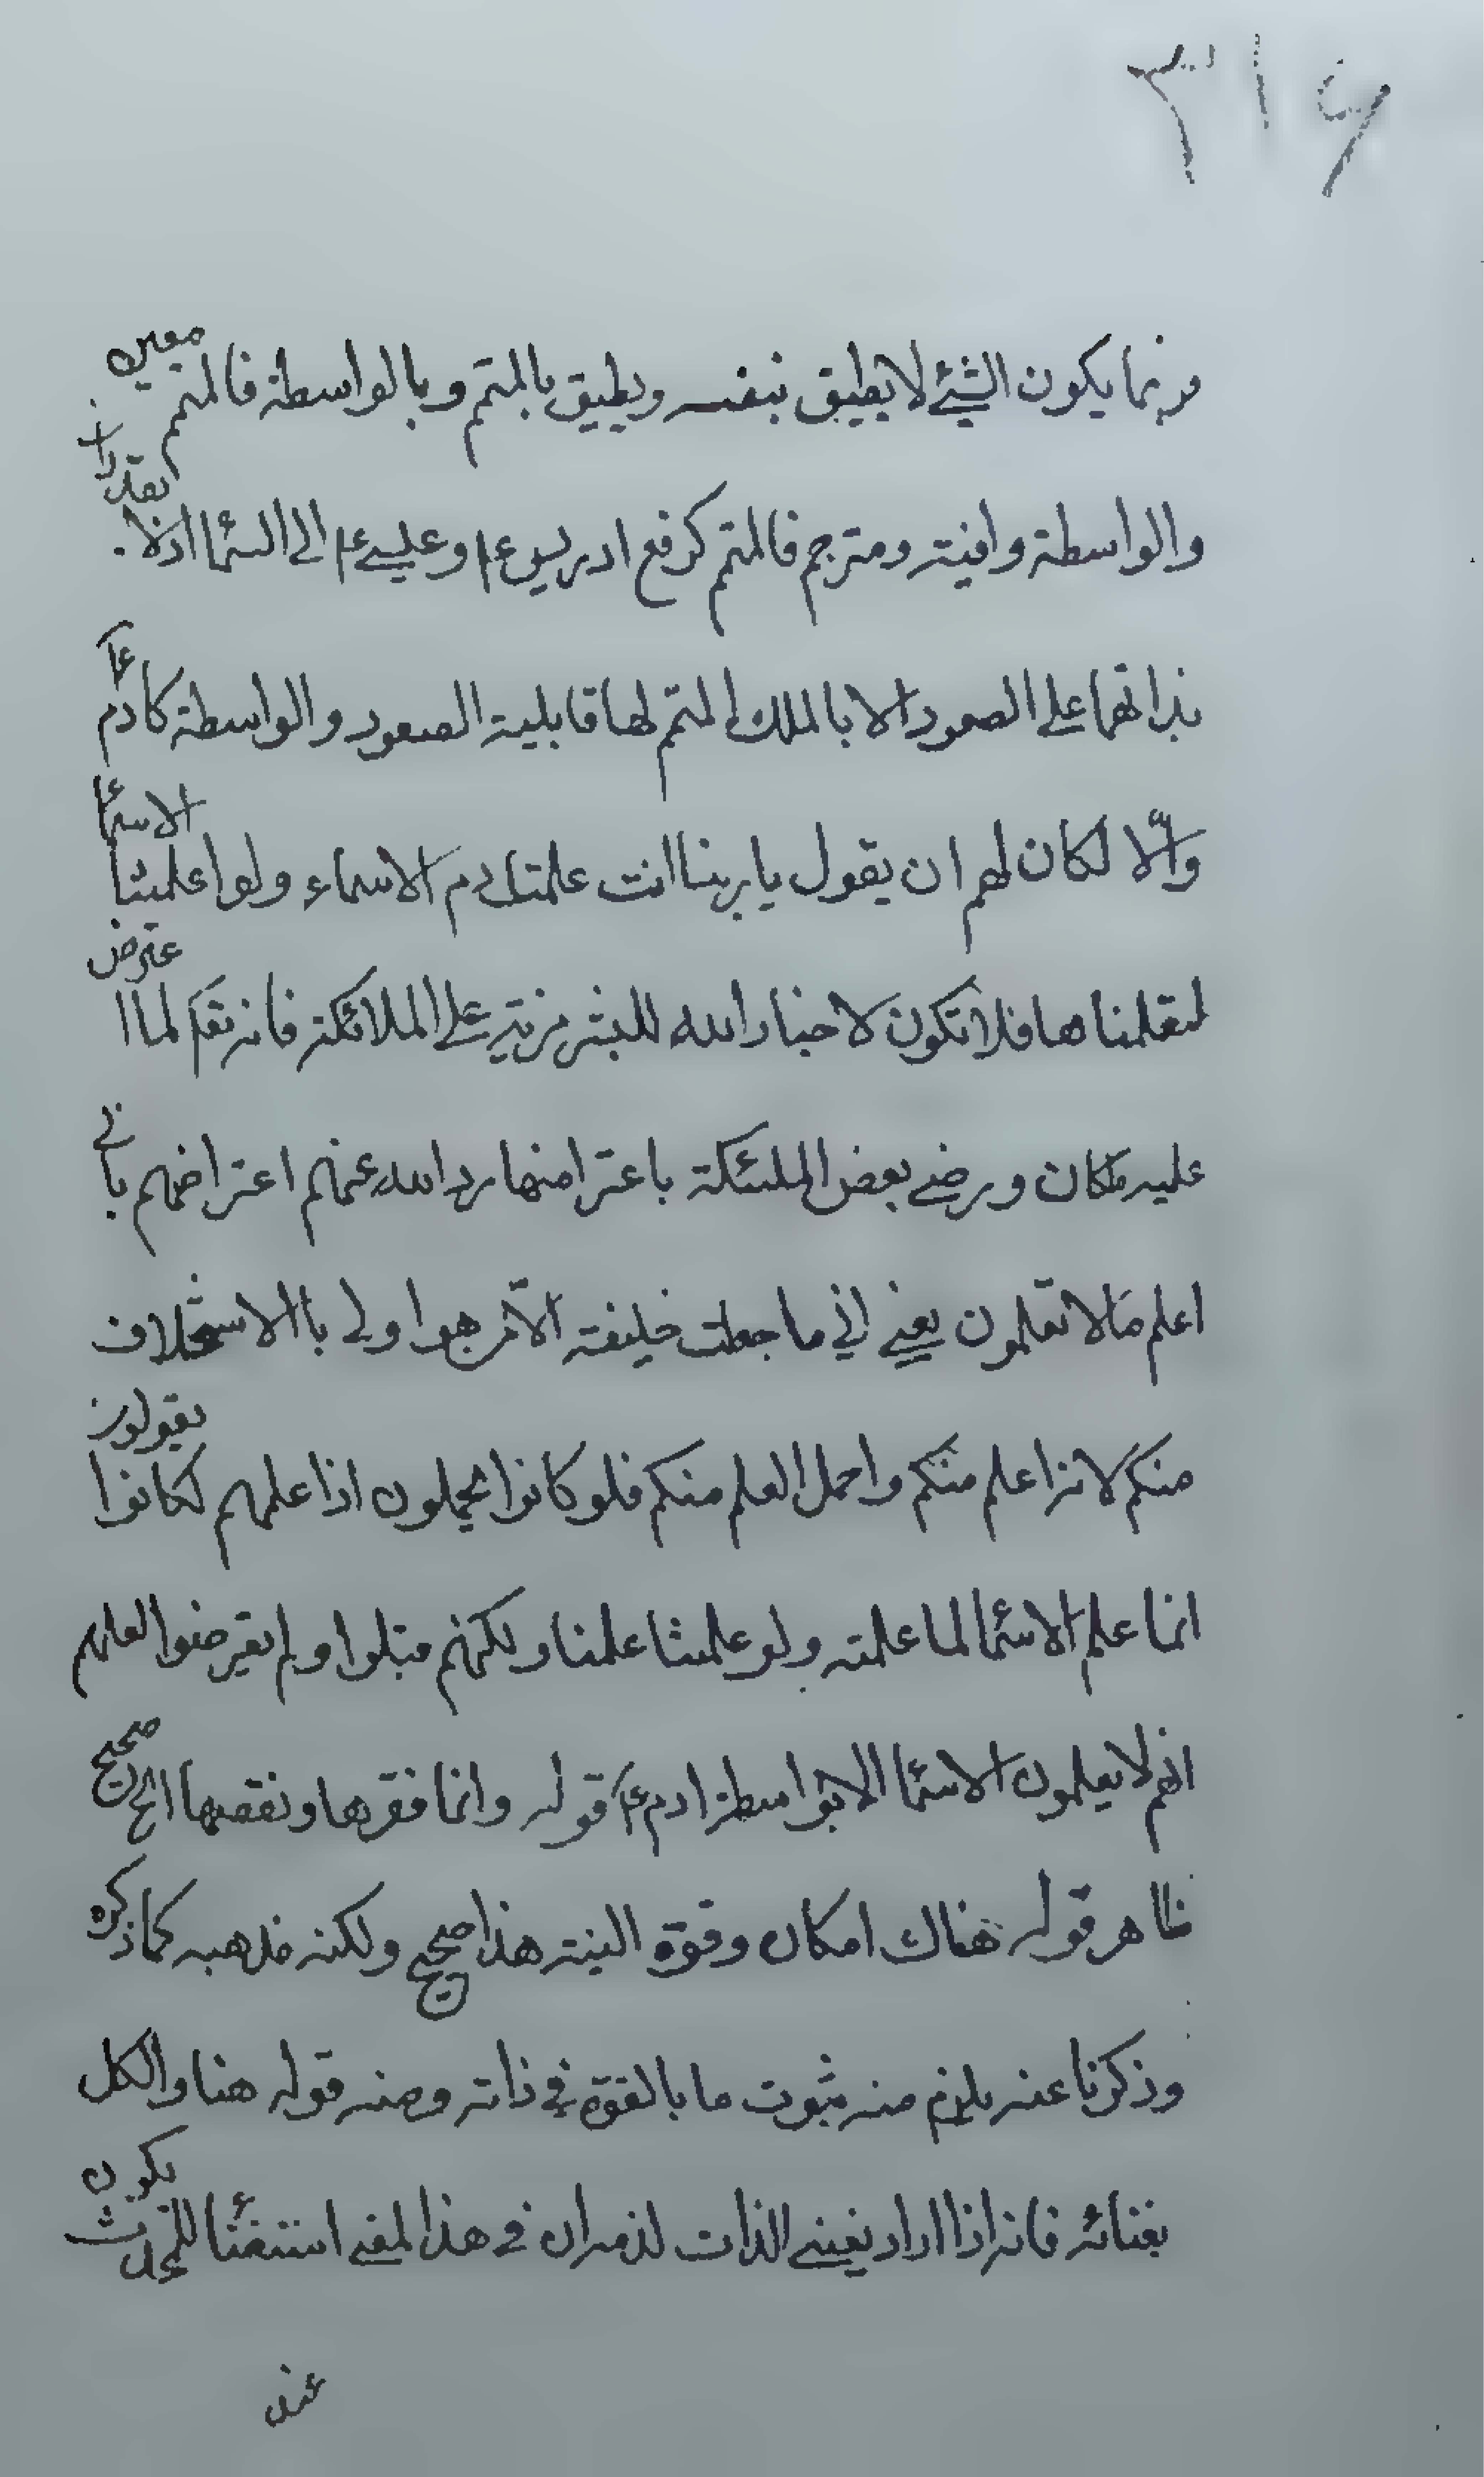 ٣١۶
وربما يكون الشيئ لا يطيق بنفسه ويطيق بالمتمم وبالواسطة فالمتمم معين
والواسطة واقية ومترجم فالمتمم كرفع ادريس ع م وعيسى ع م الى السما اذ لا يقدران
بذاتهما على الصعود الا بالملك المتمم لها قابلية الصعود والواسطة كادم ع م
والّا لكان لهم ان يقول يا ربنا انت علمت ادم الاسماء ولو اعلمتنا الاسما
لتعلمناها فلا تكون لاخبار الله للبشر مزية على الملائكة فانه تعم لما اعترض
عليه ملكان ورضى بعض الملئكة باعتراضها رد الله عنهم اعتراضهم باني
اعلم ما لا تعلمون يعني اني ما جعلت خليفة الا من هو اولى باالاستخلاف
منكم لانه اعلم منكم واحمل العلم منكم فلو كانوا يحملون اذا علمهم لكانوا يقولون
انما علم الاسما لما علمته ولو علمتنا علمنا ولكنهم قبلوا ولم يعترضوا لعلمهم
انهم لا يعلمون الاسما الا بواسطة ادم ع م قوله وانما فقرها ونقصها الخ صحيح
ظاهر قوله هناك امكان وقوة البتة هذا صحيح ولكنه مذهبه كما ذكره
وذكرنا عنه يلزم منه ثبوت ما بالقوة في ذاته ومنه قوله هنا والكل
بغنائه فانه اذا اراد بغنى الذات لذمه ان في هذا المغى استغنا للمحدث يكون
عند